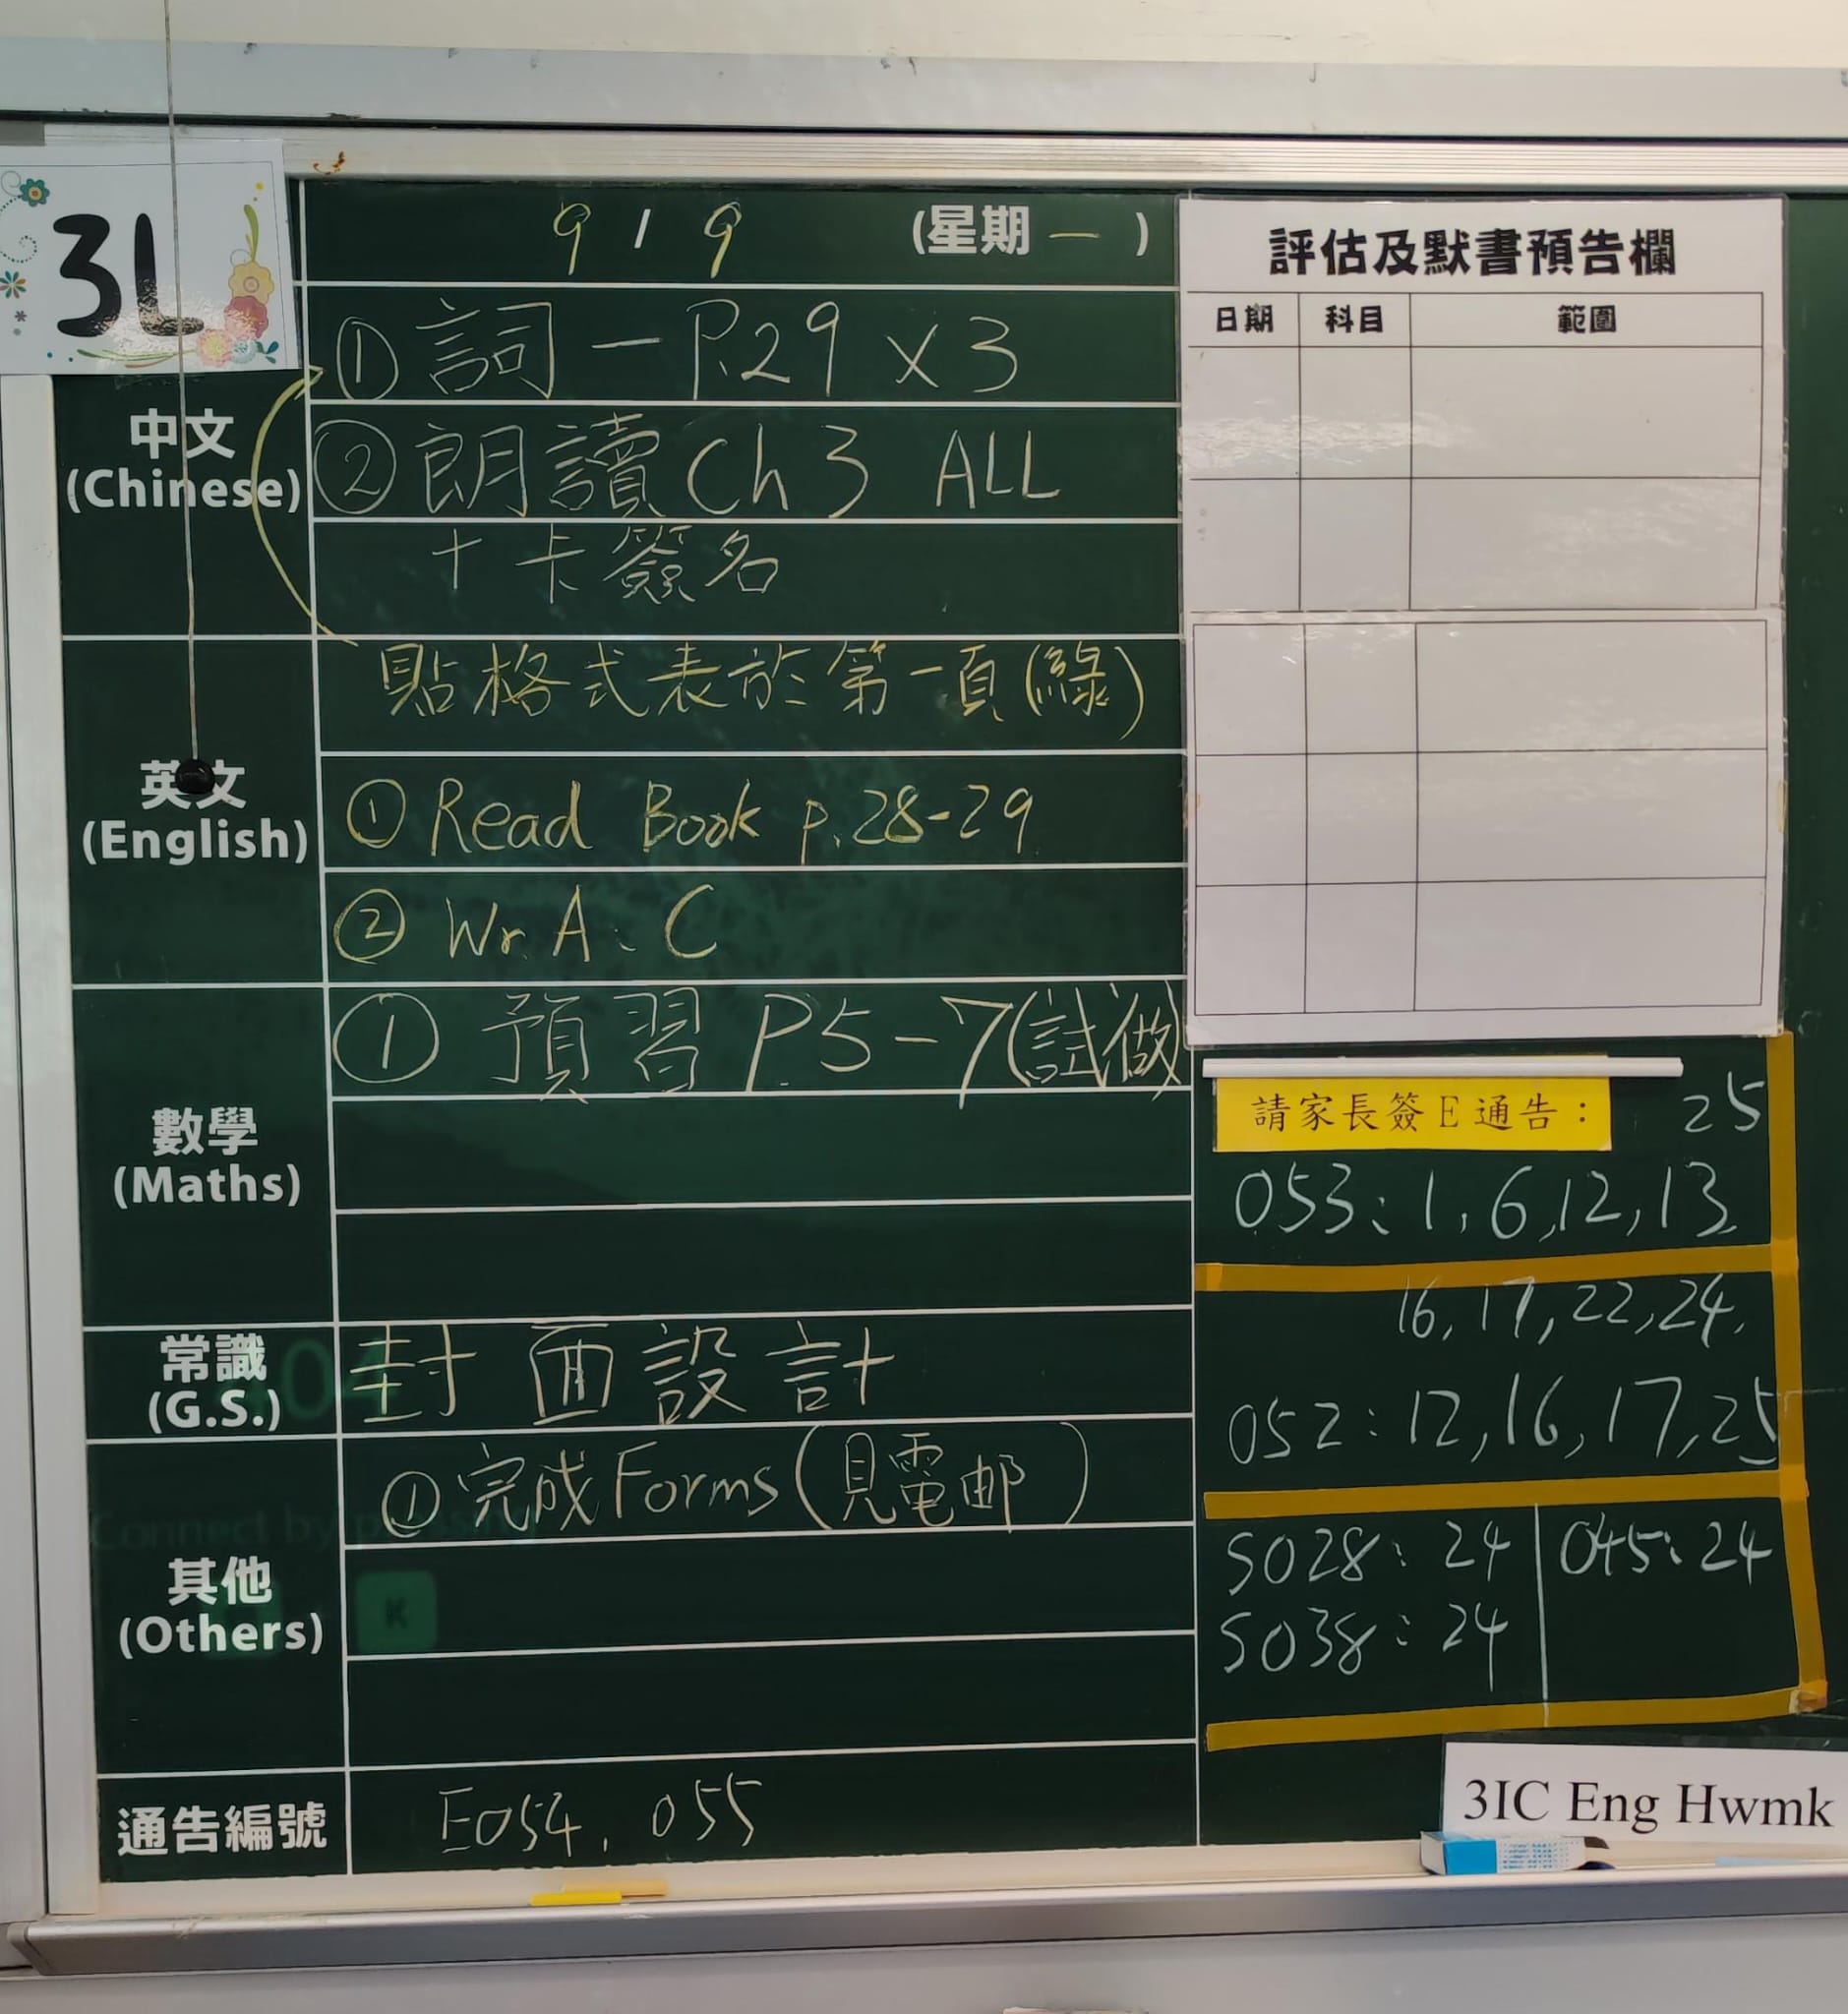 3L
9 / 9 (星期一)
中文
(Chinese)
① 詞一 P.29 x 3
② 朗讀 Ch 3 ALL
+ 卡簽名
貼格式表於第一頁(綠)
英文
(English)
① Read Book p.28-29
② Wr. A、C
數學
(Maths)
① 預習 P.5-7(試做)
常識
(G.S.)
封面設計
其他
(Others)
① 完成Forms(見電郵)
K
通告編號
E054, 055
評估及默書預告欄
日期 科目 範圍
請家長簽E通告: 25
053: 1, 6, 12, 13,
16, 17, 22, 24,
052: 12, 16, 17, 25
S028: 24 045: 24
S038: 24
3IC Eng Hwmk